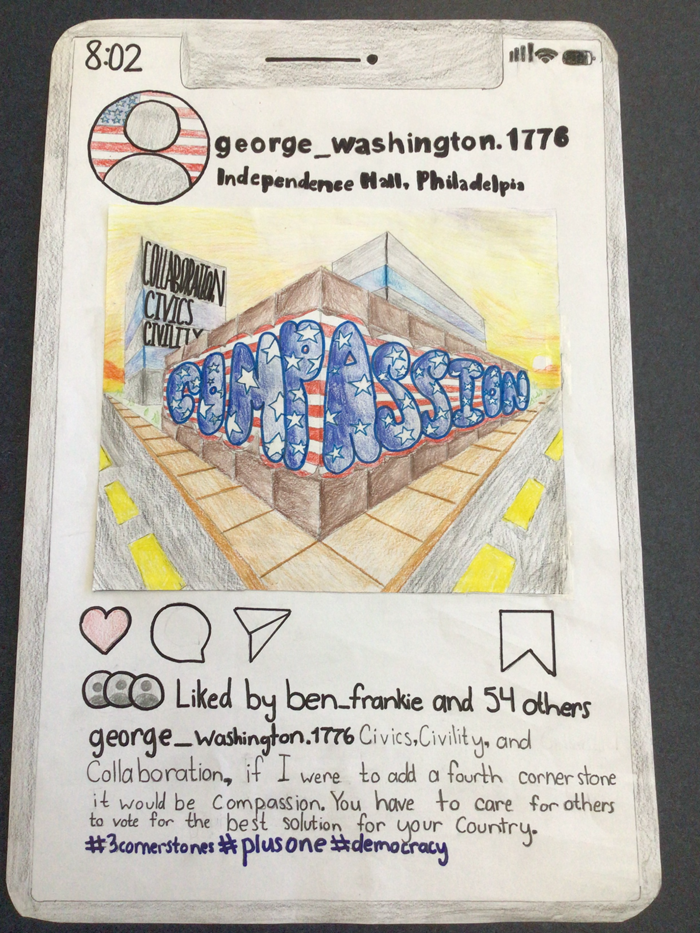 8:02
george_washington.1776
Independence Hall, Philadelpia
COLLABORATION
CIVICS
CIVILITY
COMPASSION
Liked by ben_frankie and 54 others
george_washington.1776 Civics, Civility, and
Collaboration, if I were to add a fourth corner stone
it would be Compassion. You have to care for others
to vote for the best solution for your Country.
#3cornerstones #plusone #democracy